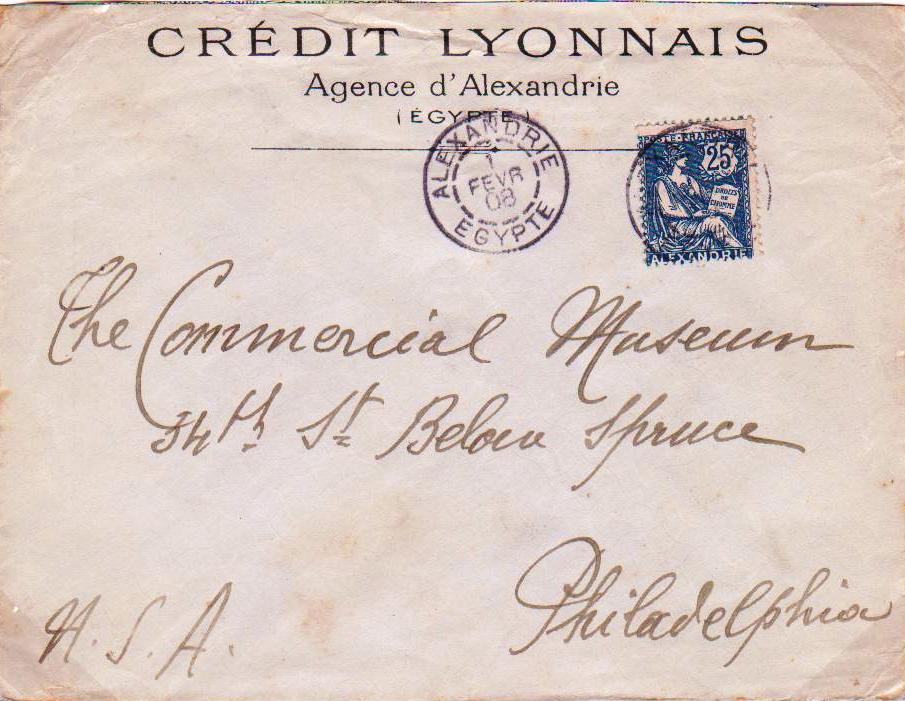 CRÉDIT LYONNAIS
Agence d'Alexandrie
(ÉGYPTE)
ALEXANDRIE
1
FEVR
08
EGYPTE
POSTE FRANÇAISE
25
DROITS
DE
L'HOMME
ALEXANDRIE
The Commercial Museum
34th St Below Spruce
Philadelphia
U.S.A.